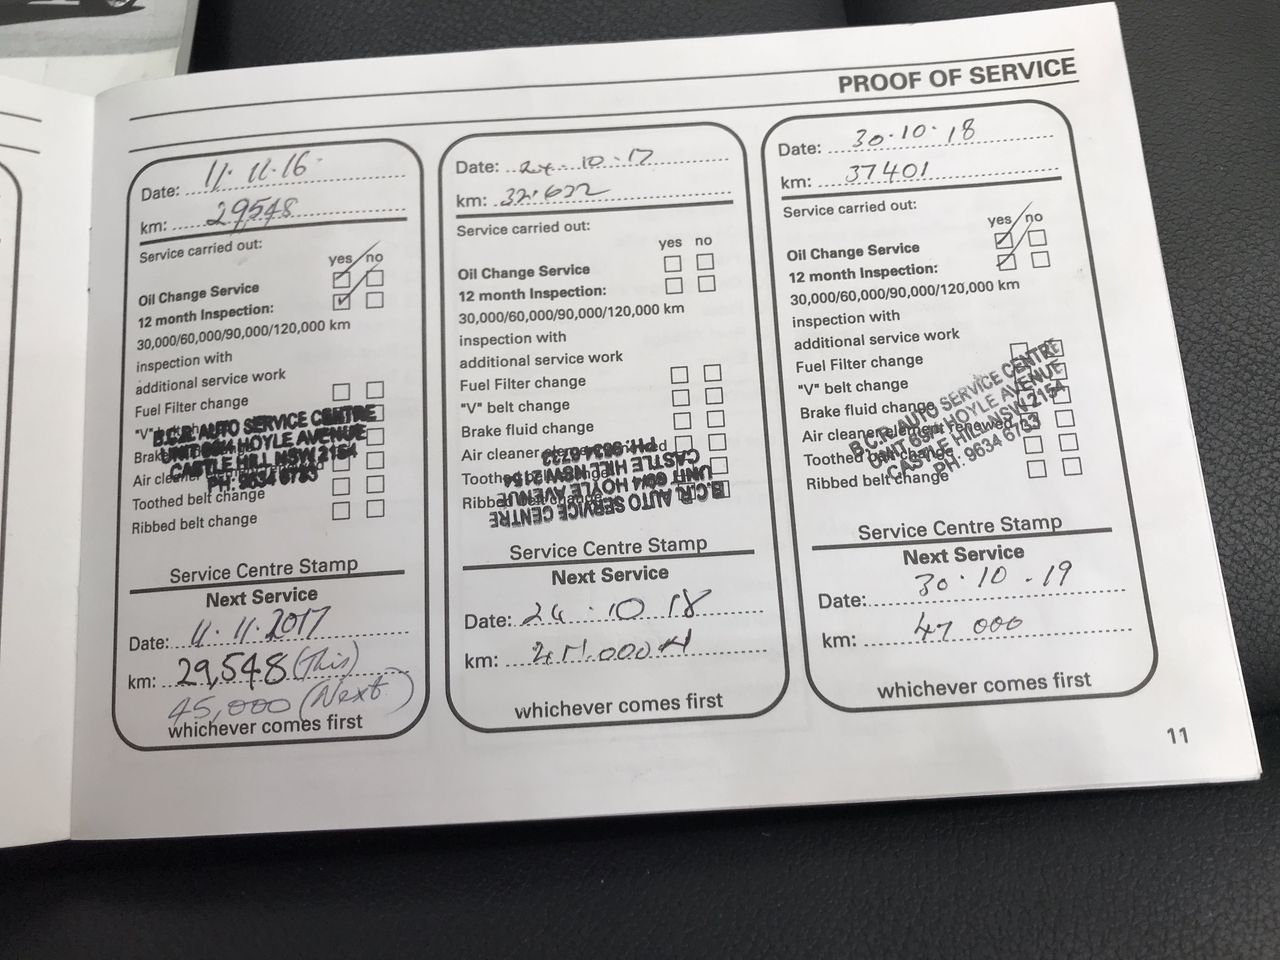 PROOF OF SERVICE
Date: 11.11.16
km: 29548
Service carried out:
yes no
Oil Change Service
12 month Inspection:
30,000/60,000/90,000/120,000 km
inspection with
additional service work
Fuel Filter change
"V" belt change
B.C.R. AUTO SERVICE CENTRE
UNIT HOYLE AVENUE
CASTLE HILL NSW 2154
PH: 9634 6733
Air cleaner
Toothed belt change
Ribbed belt change
Service Centre Stamp
Next Service
Date: 11.11.2017
km: 29,548 (This)
45,000 (Next)
whichever comes first
Date: 24.10.17
km: 32.622
Service carried out:
yes no
Oil Change Service
12 month Inspection:
30,000/60,000/90,000/120,000 km
inspection with
additional service work
Fuel Filter change
"V" belt change
Brake fluid change
Air cleaner element renewed
Toothed belt change
Ribbed belt change
B.C.R. AUTO SERVICE CENTRE
UNIT HOYLE AVENUE
CASTLE HILL NSW 2154
PH: 9634 6733
Service Centre Stamp
Next Service
Date: 24.10.18
km:
whichever comes first
Date: 30.10.18
km: 37401
Service carried out:
yes no
Oil Change Service
12 month Inspection:
30,000/60,000/90,000/120,000 km
inspection with
additional service work
Fuel Filter change
"V" belt change
Brake fluid change
Air cleaner element renewed
Toothed belt change
Ribbed belt change
B.C.R. AUTO SERVICE CENTRE
UNIT HOYLE AVENUE
CASTLE HILL NSW 2154
PH: 9634 6733
Service Centre Stamp
Next Service
Date: 30.10.19
km: 47 000
whichever comes first
11